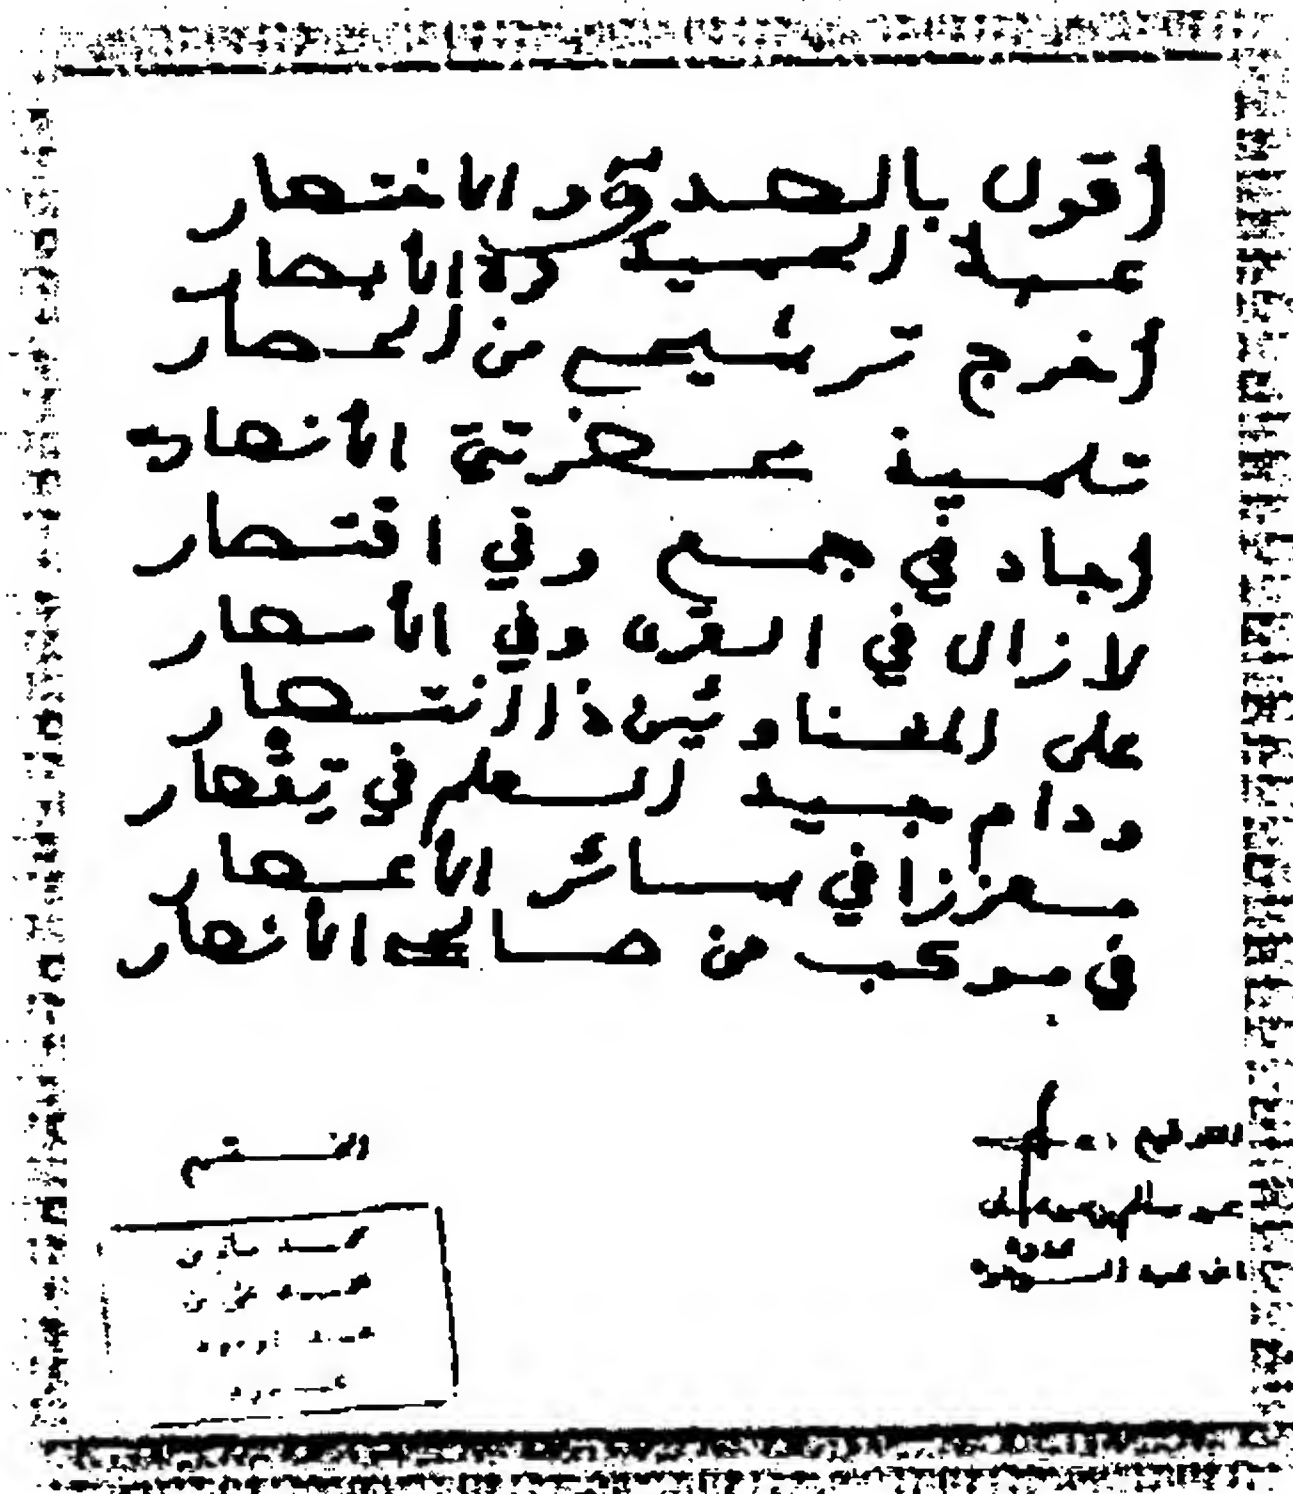 أقول بالصدق والاختصار
عبد الحميد قرة الأبصار
أخرج ترشيح من الحصار
تلميذ محضرتي الأنصار
أجاد في جمع وفي اقتصار
لا زال في القرى وفي الأمصار
على المغناوئين ذا انتصار
ودام جيد العلم في تقصار
معززا في سائر الأعصار
في موكب من صالحي الأنصار
الختم
التوقيع
محمد سالم بن
محمد